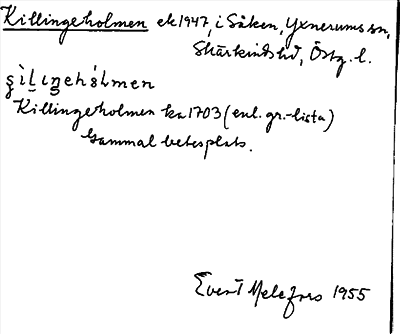 Killingeholmen ek 1947, i Såken, Yxnerums sn,
Skärkinds hd, Östg. l.
Killingeholmen ka 1703 (enl. gr.-lista)
Gammal betesplats.
Evert Melefors 1955